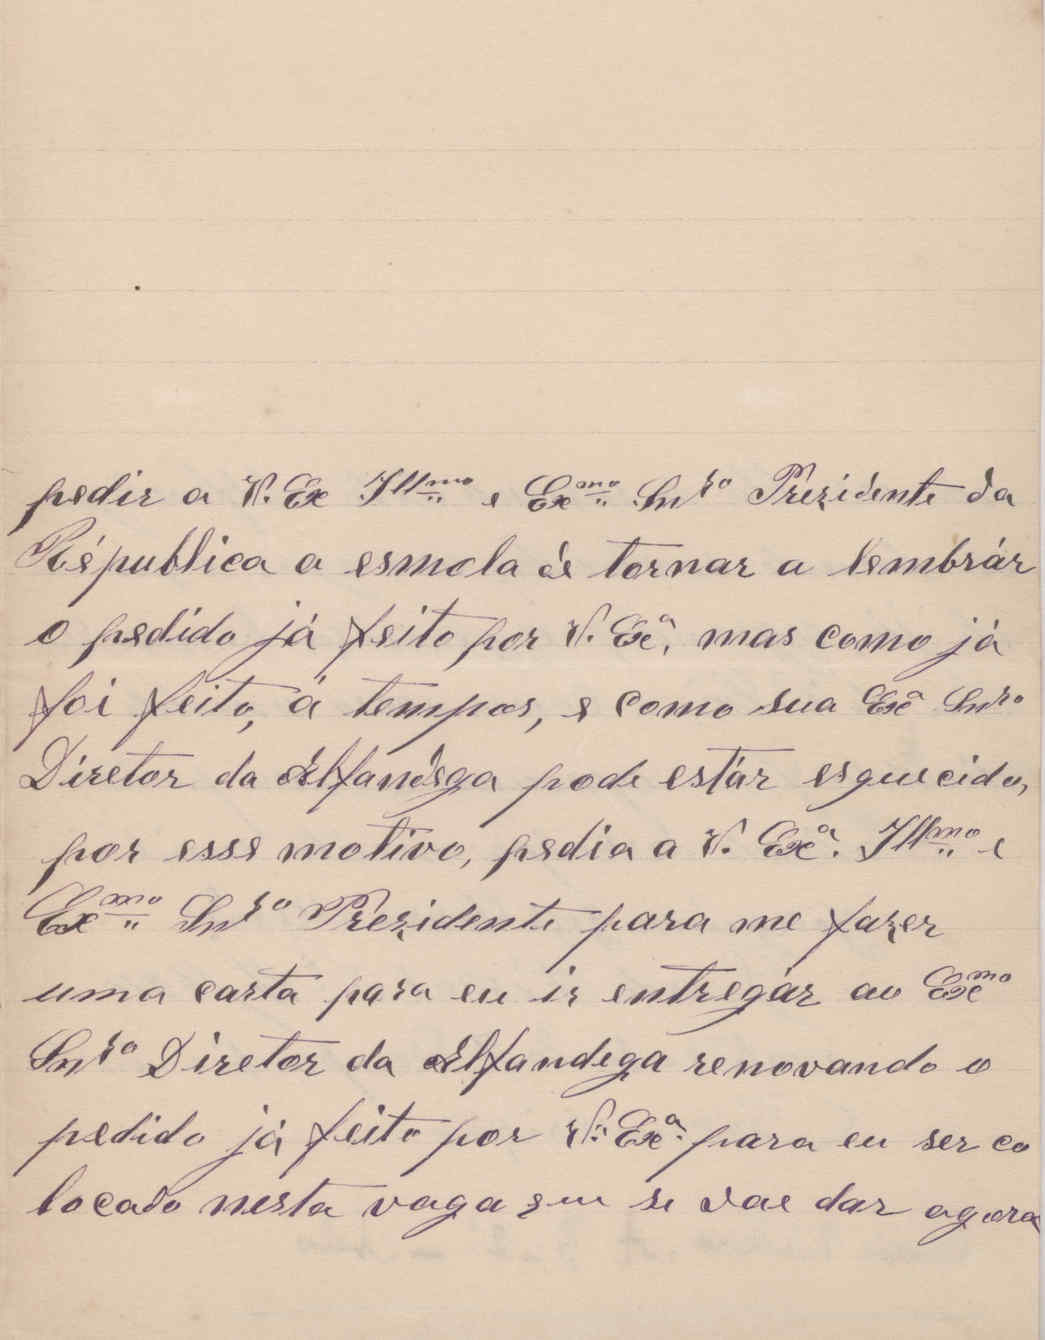 pedir a V. Ex Illmo e Exmo Snro Prezidente da
Républica a esmola de tornar a lembrár
o pedido já feito por V. Exa, mas como já
foi feito, á tempos, e como sua Exa Snro
Diretor da Alfandega pode estár esquecido,
por esse motivo, pedia a V. Exa. Illmo e
Exmo Snro Prezidente para me fazer
uma carta para eu ir entregár ao Exmo
Snro Diretor da Alfandega renovando o
pedido já feito por V. Exa. para eu ser co
locado nesta vaga que se vae dar agora